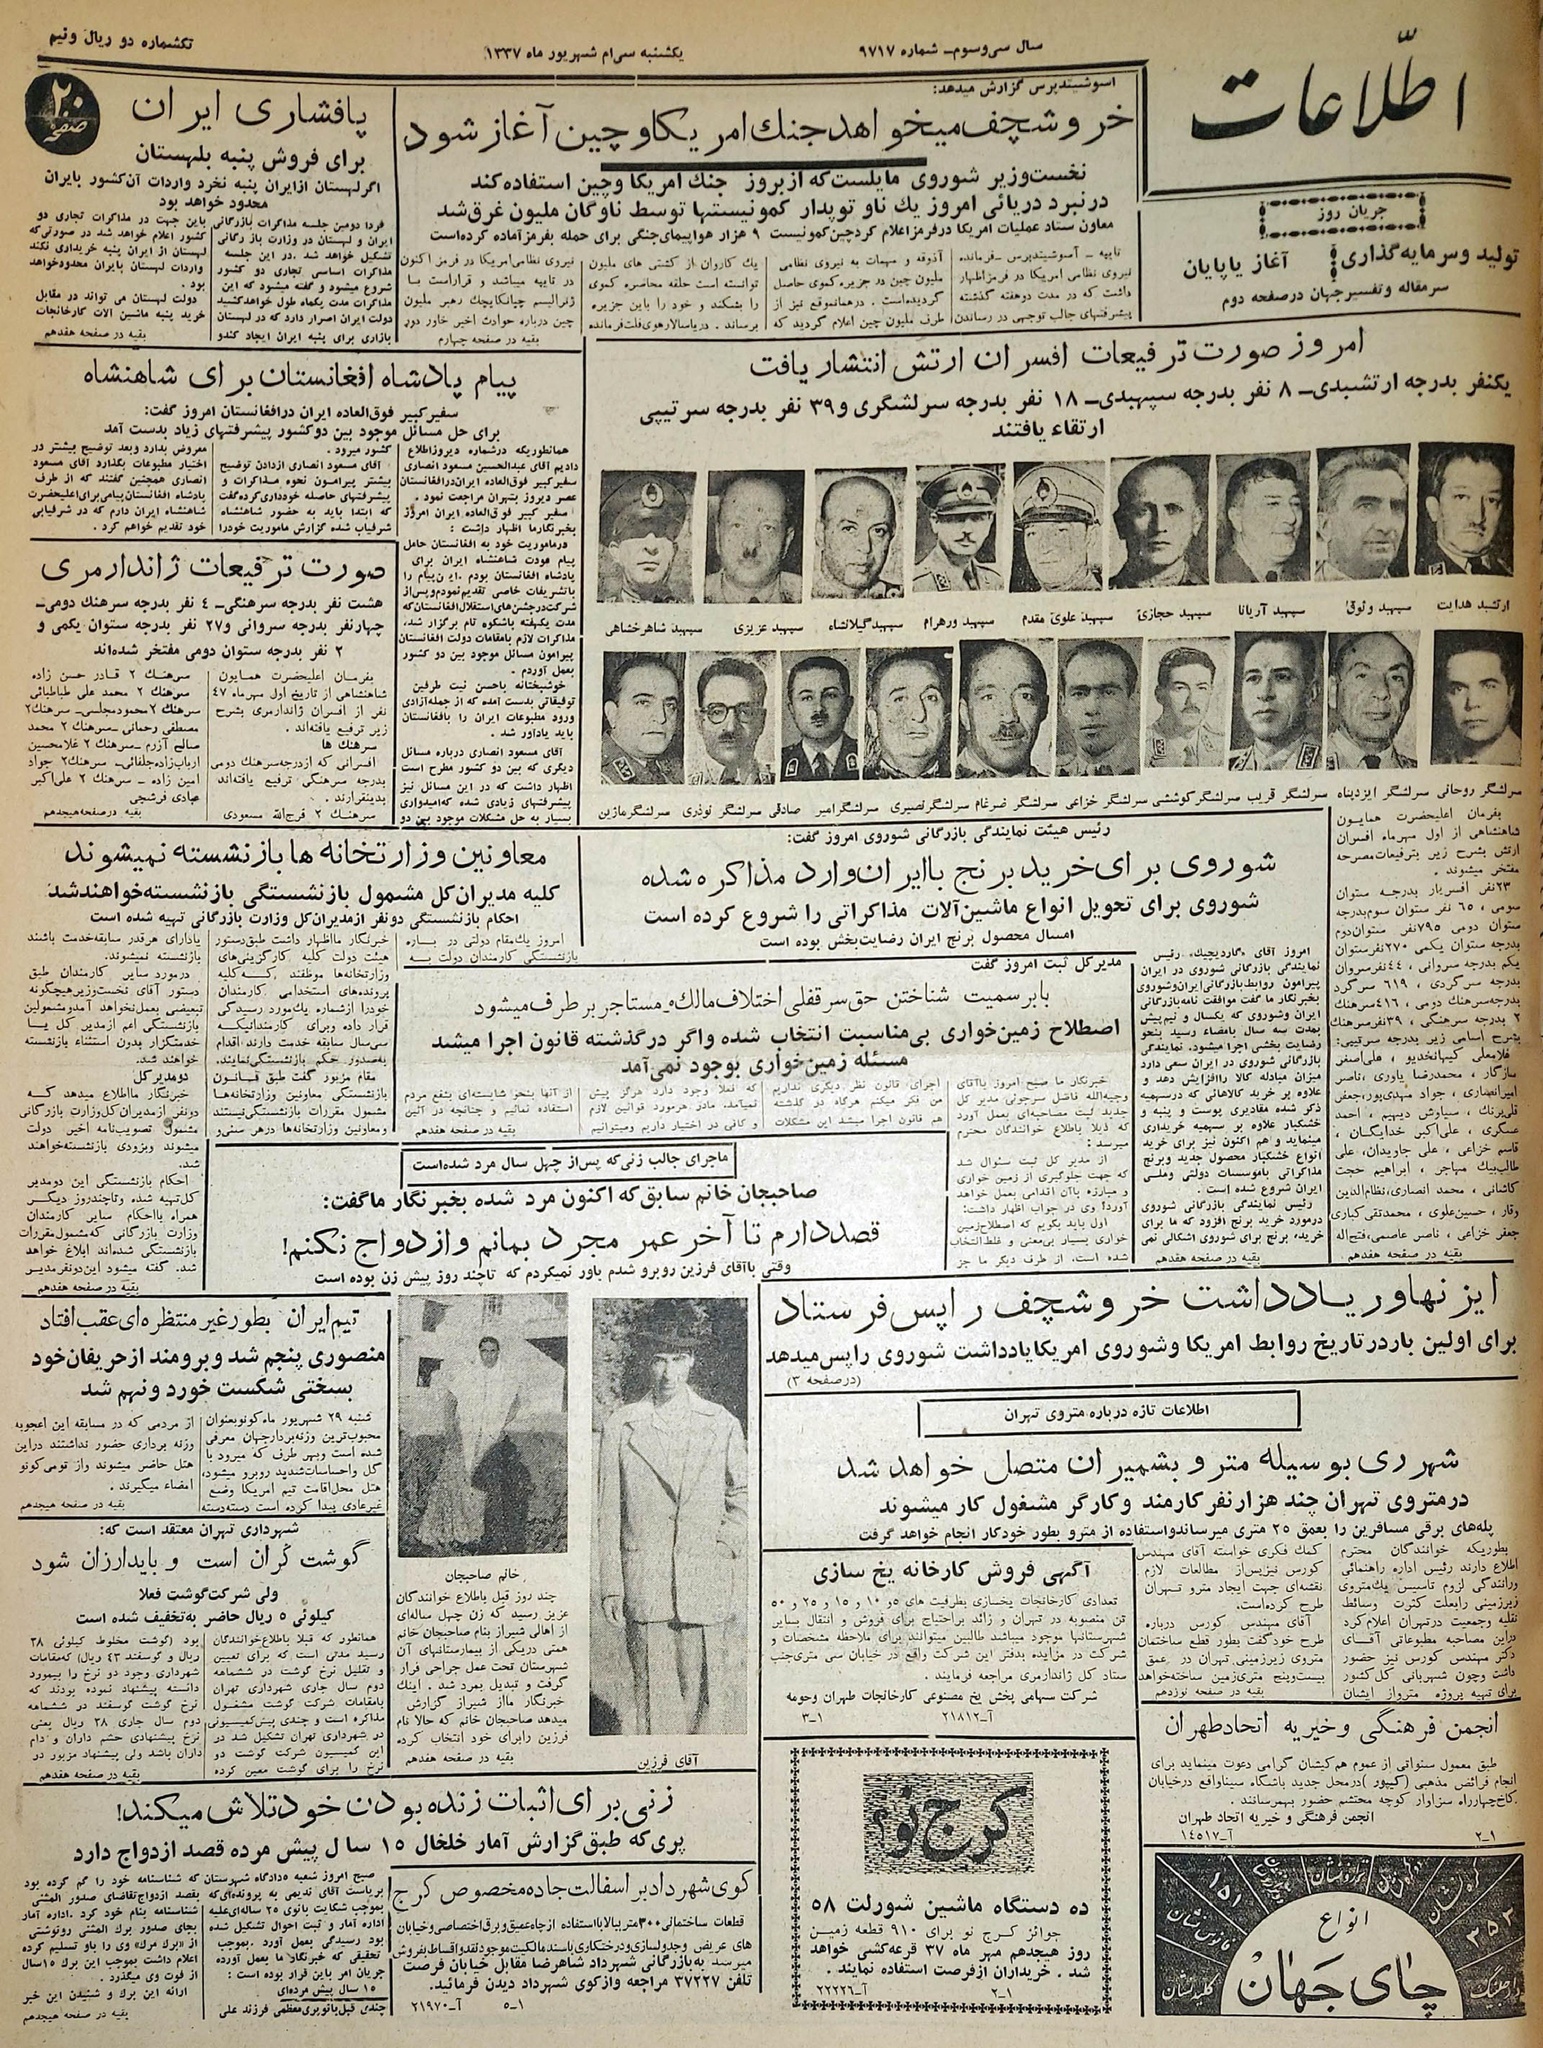 اطلاعات
سال سی‌وسوم - شماره ۹۷۱۷
یکشنبه سی‌ام شهریور ماه ۱۳۳۷
تکشماره دو ریال ونیم
۲۰ صفحه
جریان روز
تولید وسرمایه‌گذاری
آغاز یا پایان
سرمقاله وتفسیرجهان درصفحه دوم
اسوشیتدپرس گزارش میدهد:
خروشچف میخواهد جنك امریکا و چین آغاز شود
نخست‌وزیر شوروی مایلست که از بروز جنك امریکا وچین استفاده کند
درنبرد دریائی امروز یك ناو توپدار کمونیستها توسط ناوگان ملیون غرق شد
معاون ستاد عملیات امریکا درفرمز اعلام کرد چین کمونیست ۹ هزار هواپیمای جنگی برای حمله بفرمز آماده کرده‌است
تایپه - آسوشیتدپرس - فرمانده
نیروی نظامی آمریکا در فرمز اظهار
داشت که در مدت دوهفته گذشته
پیشرفتهای جالب توجهی در رساندن
آذوقه و مهمات به نیروی نظامی
ملیون چین در جزیره کموی حاصل
گردیده‌است . درهمانموقع نیز از
طرف ملیون چین اعلام گردید که
یك کاروان از کشتی های ملیون
توانسته است حلقه محاصره کموی
را بشکند و خود را باین جزیره
برساند . دریاسالار هوی فلت فرمانده
نیروی نظامی آمریکا در فرمز اکنون
در تایپه میباشد و قراراست با
ژنرالیسم چیانکایچك رهبر ملیون
چین درباره حوادث اخیر خاور دور
بقیه در صفحه چهارم
پافشاری ایران
برای فروش پنبه بلهستان
اگر لهستان ازایران پنبه نخرد واردات آن کشور بایران
محدود خواهد بود
فردا دومین جلسه مذاکرات بازرگانی
ایران و لهستان در وزارت بازرگانی
تشکیل خواهد شد . در این جلسه
مذاکرات اساسی تجاری دو کشور
شروع میشود و گفته میشود که این
مذاکرات مدت یکماه طول خواهد کشید
دولت ایران اصرار دارد که در لهستان
بازاری برای پنبه ایران ایجاد کند و
باین جهت در مذاکرات تجاری دو
کشور اعلام خواهد شد در صورتی که
لهستان از ایران پنبه خریداری نکند
واردات لهستان بایران محدود خواهد
بود .
دولت لهستان می تواند در مقابل
خرید پنبه ماشین آلات کارخانجات
بقیه در صفحه هفدهم
امروز صورت ترفیعات افسران ارتش انتشار یافت
یکنفر بدرجه ارتشبدی - ۸ نفر بدرجه سپهبدی - ۱۸ نفر بدرجه سرلشگری و ۳۹ نفر بدرجه سرتیپی
ارتقاء یافتند
ارتشبد هدایت
سپهبد وثوق
سپهبد آریانا
سپهبد حجازی
سپهبد علوی مقدم
سپهبد ورهرام
سپهبد گیلانشاه
سپهبد عزیزی
سپهبد شاهرخشاهی
سرلشگر روحانی سرلشگر ایزدپناه سرلشگر قریب سرلشگر کوششی سرلشگر خزاعی سرلشگر ضرغام سرلشگر نصیری سرلشگر امیر صادقی سرلشگر نوذری سرلشگر مازین
بفرمان اعلیحضرت همایون
شاهنشاهی از اول مهرماه افسران
ارتش بشرح زیر بترفیعات مصرحه
مفتخر میشوند .
۲۳ نفر افسریار بدرجه ستوان
سومی ، ۶۵ نفر ستوان سوم بدرجه
ستوان دومی ۷۹۵ نفر ستوان دوم
بدرجه ستوان یکمی ۲۷۰ نفر ستوان
یکم بدرجه سروانی ، ۴۴ نفر سروان
بدرجه سرگردی ، ۶۱۹ سرگرد
بدرجه سرهنك دومی ، ۴۱۶ سرهنك
۲ بدرجه سرهنگی ، ۳۹ نفر سرهنك
بشرح اسامی زیر بدرجه سرتیپی:
غلامعلی کیهانخدیو ، علی‌اصغر
سازگار ، محمدرضا یاوری ، ناصر
امیرانصاری ، جواد مهدی‌پور، جعفر
قلی‌رنك ، سیاوش دیهیم ، احمد
عسکری ، علی‌اکبر خدایگان ،
قاسم خزاعی ، علی جاویدان، علی
طالب‌بیك مهاجر ، ابراهیم حجت
کاشانی ، محمد انصاری، نظام‌الدین
وقار ، حسین علوی ، محمدتقی کباری
جعفر خزاعی ، ناصر عاصمی، فتح‌اله
بقیه در صفحه هفدهم
پیام پادشاه افغانستان برای شاهنشاه
سفیر کبیر فوق‌العاده ایران درافغانستان امروز گفت:
برای حل مسائل موجود بین دو کشور پیشرفتهای زیاد بدست آمد
همانطوریکه درشماره دیروز اطلاع
دادیم آقای عبدالحسین مسعود انصاری
سفیر کبیر فوق‌العاده ایران در افغانستان
عصر دیروز بتهران مراجعت نمود .
سفیر کبیر فوق‌العاده ایران امروز
بخبرنگار ما اظهار داشت :
درماموریت خود به افغانستان حامل
پیام مودت شاهنشاه ایران برای
پادشاه افغانستان بودم . این پیام را
باتشریفات خاصی تقدیم نمودم و پس از
شرکت درجشن‌های استقلال افغانستان که
مدت یکهفته باشکوه تام برگزار شد،
مذاکرات لازم بامقامات دولت افغانستان
پیرامون مسائل موجود بین دو کشور
بعمل آوردم .
خوشبختانه باحسن نیت طرفین
توفیقاتی بدست آمده که از جمله آزادی
ورود مطبوعات ایران را بافغانستان
باید یادآور شد .
آقای مسعود انصاری درباره مسائل
دیگری که بین دو کشور مطرح است
اظهار داشت که در این مسائل نیز
پیشرفتهای زیادی شده که امیدواری
بسیار به حل مشکلات موجود بین دو
کشور میرود .
آقای مسعود انصاری ازدادن توضیح
بیشتر پیرامون نحوه مذاکرات و
پیشرفتهای حاصله خودداری کرده گفت
که ابتدا باید به حضور شاهنشاه
شرفیاب شده گزارش ماموریت خود را
معروض بدارد وبعد توضیح بیشتر در
اختیار مطبوعات بگذارد آقای مسعود
انصاری همچنین گفتند که از طرف
پادشاه افغانستان پیامی برای اعلیحضرت
شاهنشاه ایران دارم که در شرفیابی
خود تقدیم خواهم کرد .
صورت ترفیعات ژاندارمری
هشت نفر بدرجه سرهنگی - ۴ نفر بدرجه سرهنك دومی -
چهارنفر بدرجه سروانی و ۲۷ نفر بدرجه ستوان یکمی و
۲ نفر بدرجه ستوان دومی مفتخر شده‌اند
بفرمان اعلیحضرت همایون
شاهنشاهی از تاریخ اول مهرماه ۴۷
نفر از افسران ژاندارمری بشرح
زیر ترفیع یافته‌اند .
سرهنك ها
افسرانی که ازدرجه سرهنك دومی
بدرجه سرهنگی ترفیع یافته‌اند
بدینقرارند .
سرهنك ۲ فرج‌الله مسعودی
سرهنك ۲ قادر حسن زاده
سرهنك ۲ محمد علی طباطبائی
سرهنك ۲ محمود مجلسی - سرهنك ۲
مصطفی رحمانی - سرهنك ۲ محمد
صالح آزرم - سرهنك ۲ غلامحسین
ارباب‌زاده جلفائی - سرهنك ۲ جواد
امین زاده - سرهنك ۲ علی‌اکبر
عبادی فرشچی
بقیه درصفحه هیجدهم
رئیس هیئت نمایندگی بازرگانی شوروی امروز گفت:
شوروی برای خرید برنج با ایران وارد مذاکره شده
شوروی برای تحویل انواع ماشین‌آلات مذاکراتی را شروع کرده است
امسال محصول برنج ایران رضایت‌بخش بوده است
امروز آقای «گاردیچیك» رئیس
نمایندگی بازرگانی شوروی در ایران
پیرامون روابط بازرگانی ایران وشوروی
بخبرنگار ما گفت موافقت نامه بازرگانی
ایران وشوروی که یکسال و نیم پیش
بمدت سه سال بامضاء رسید بنحو
رضایت بخشی اجرا میشود. نمایندگی
بازرگانی شوروی در ایران سعی دارد
میزان مبادله کالا را افزایش دهد و
علاوه بر خرید کالاهائی که درسهمیه
ذکر شده مقادیری پوست و پنبه و
خشکبار علاوه بر سهمیه خریداری
مینماید و هم اکنون نیز برای خرید
انواع خشکبار محصول جدید وبرنج
مذاکراتی باموسسات دولتی وملی
ایران شروع شده است .
رئیس نمایندگی بازرگانی شوروی
درمورد خرید برنج افزود که ما برای
خرید، برنج برای شوروی اشکالی نمی
بقیه در صفحه هفدهم
معاونین وزارتخانه ها بازنشسته نمیشوند
کلیه مدیران کل مشمول بازنشستگی بازنشسته خواهند شد
احکام بازنشستگی دونفر ازمدیران کل وزارت بازرگانی تهیه شده است
امروز یك مقام دولتی در باره
بازنشستگی کارمندان دولت به
خبرنگار ما اظهار داشت طبق دستور
هیئت دولت کلیه کارگزینی‌های
وزارتخانه‌ها موظفند که کلیه
پرونده‌های استخدامی کارمندان
خود را ازشماره یك مورد رسیدگی
قرار داده وبرای کارمندانیکه
سی‌سال سابقه خدمت دارند اقدام
به‌صدور حکم بازنشستگی نمایند.
مقام مزبور گفت طبق قانون
بازنشستگی معاونین وزارتخانه‌ها
مشمول مقررات بازنشستگی نیستند
ومعاونین وزارتخانه‌ها درهر سنی و
یا دارای هر قدر سابقه خدمت باشند
بازنشسته نمیشوند.
درمورد سایر کارمندان طبق
دستور آقای نخست‌وزیر هیچگونه
تبعیضی بعمل نخواهد آمد ومشمولین
بازنشستگی اعم ازمدیر کل یا
خدمتگزار بدون استثناء بازنشسته
خواهند شد.
دومدیر کل
خبرنگار ما اطلاع میدهد که
دونفر ازمدیران کل وزارت بازرگانی
مشمول تصویب‌نامه اخیر دولت
میشوند وبزودی بازنشسته خواهند
شد.
احکام بازنشستگی این دومدیر
کل تهیه شده وتاچندروز دیگر
همراه بااحکام سایر کارمندان
وزارت بازرگانی که مشمول مقررات
بازنشستگی شده‌اند ابلاغ خواهد
شد. گفته میشود این دونفر مدیر
بقیه در صفحه هفدهم
مدیر کل ثبت امروز گفت
بابرسمیت شناختن حق سرقفلی اختلاف مالك و مستاجر برطرف میشود
اصطلاح زمین‌خواری بی‌مناسبت انتخاب شده واگر درگذشته قانون اجرا میشد
مسئله زمین‌خواری بوجود نمی‌آمد
خبرنگار ما صبح امروز باآقای
وجیه‌الله فاضل سرجوئی مدیر کل
جدید ثبت مصاحبه‌ای بعمل آورد
که ذیلا باطلاع خوانندگان محترم
میرسد :
از مدیر کل ثبت سئوال شد
که جهت جلوگیری از زمین خواری
و مبارزه باآن اقدامی بعمل خواهد
آورد؟ وی در جواب اظهار داشت:
اول باید بگویم که اصطلاح زمین
خواری بسیار بی‌معنی و غلط انتخاب
شده است. از طرف دیگر ما جز
اجرای قانون نظر دیگری نداریم
من فکر میکنم هرگاه در گذشته
هم قانون اجرا میشد این مشکلات
که فعلا وجود دارد هرگز پیش
نمیآمد. مادر هرمورد قوانین لازم
و کافی در اختیار داریم ومیتوانیم
از آنها بنحو شایسته‌ای بنفع مردم
استفاده نمائیم و چنانچه در آئین
بقیه در صفحه هفدهم
ماجرای جالب زنی که پس‌از چهل سال مرد شده‌است
صاحبجان خانم سابق که اکنون مرد شده بخبرنگار ماگفت:
قصددارم تا آخر عمر مجرد بمانم و ازدواج نکنم!
وقتی باآقای فرزین روبرو شدم باور نمیکردم که تاچند روز پیش زن بوده است
خانم صاحبجان
چند روز قبل باطلاع خوانندگان
عزیز رسید که زن چهل ساله‌ای
از اهالی شیراز بنام صاحبجان خانم
همتی دریکی از بیمارستانهای آن
شهرستان تحت عمل جراحی قرار
گرفت و تبدیل بمرد شد . اینك
خبرنگار ما از شیراز گزارش
میدهد صاحبجان خانم که حالا نام
فرزین را برای خود انتخاب کرده
بقیه در صفحه هفدهم
آقای فرزین
ایزنهاور یادداشت خروشچف را پس فرستاد
برای اولین بار در تاریخ روابط امریکا وشوروی امریکا یادداشت شوروی را پس میدهد
(درصفحه ۳)
تیم ایران بطور غیر منتظره‌ای عقب افتاد
منصوری پنجم شد و برومند از حریفان خود
بسختی شکست خورد و نهم شد
شنبه ۲۹ شهریور ماه کونو بعنوان
محبوب‌ترین وزنه‌بردار جهان معرفی
شده است وبهر طرف که میرود با
گل واحساسات شدید روبرو میشود،
هتل محل‌اقامت تیم امریکا وضع
غیرعادی پیدا کرده است دسته‌دسته
از مردمی که در مسابقه این اعجوبه
وزنه برداری حضور نداشتند دراین
هتل حاضر میشوند واز تومی کونو
امضاء میگیرند .
بقیه در صفحه هیجدهم
شهرداری تهران معتقد است که:
گوشت گران است و باید ارزان شود
ولی شرکت گوشت فعلا
کیلوئی ۵ ریال حاضر به تخفیف شده است
همانطور که قبلا باطلاع خوانندگان
رسید مدتی است که برای تعیین
و تقلیل نرخ گوشت در ششماهه
دوم سال جاری شهرداری تهران
بامقامات شرکت گوشت مشغول
مذاکره است و چندی پیش کمیسیونی
در شهرداری تهران تشکیل شد در
این کمیسیون شرکت گوشت دو
نرخ را برای گوشت معین کرده
بود (گوشت مخلوط کیلوئی ۳۸
ریال و گوسفند ۴۳ ریال) که مقامات
شهرداری وجود دو نرخ را بیمورد
دانسته پیشنهاد نموده بودند که
نرخ گوشت گوسفند در ششماهه
دوم سال جاری ۳۸ ریال یعنی
نرخ پیشنهادی حشم داران و دام
داران باشد ولی پیشنهاد مزبور در
بقیه در صفحه هفدهم
اطلاعات تازه درباره متروی تهران
شهر ری بوسیله مترو بشمیران متصل خواهد شد
درمتروی تهران چند هزار نفر کارمند و کارگر مشغول کار میشوند
پله‌های برقی مسافرین را بعمق ۲۵ متری میرساند و استفاده از مترو بطور خودکار انجام خواهد گرفت
بطوریکه خوانندگان محترم
اطلاع دارند رئیس اداره راهنمائی
ورانندگی لزوم تاسیس یك متروی
زیرزمینی رابعلت کثرت وسائط
نقلیه وجمعیت درتهران اعلام کرد
دراین مصاحبه مطبوعاتی آقای
دکتر مهندس کورس نیز حضور
داشت وچون شهربانی کل کشور
برای تهیه پروژه مترو از ایشان
کمك فکری خواسته آقای مهندس
کورس نیز پس‌از مطالعات لازم
نقشه‌ای جهت ایجاد مترو تهران
طرح کرده‌است.
آقای مهندس کورس درباره
طرح خودگفت بطور قطع ساختمان
متروی زیرزمینی تهران در عمق
بیست‌وپنج متری زمین ساخته خواهد
بقیه در صفحه نوزدهم
آگهی فروش کارخانه یخ سازی
تعدادی کارخانجات یخسازی بظرفیت های ۵ و ۱۰ و ۱۵ و ۲۵ و ۵۰
تن منصوبه در تهران و زائد براحتیاج برای فروش و انتقال بسایر
شهرستانها موجود میباشد طالبین میتوانند برای ملاحظه مشخصات و
شرکت در مزایده بدفتر این شرکت واقع در خیابان سی متری جنب
ستاد کل ژاندارمری مراجعه فرمایند .
شرکت سهامی پخش یخ مصنوعی کارخانجات طهران وحومه
آ-۲۱۸۱۲
۳-۱
انجمن فرهنگی و خیریه اتحاد طهران
طبق معمول سنواتی از عموم هم کیشان گرامی دعوت مینماید برای
انجام فرائض مذهبی (کیپور) درمحل جدید باشگاه سینا واقع درخیابان
کاخ چهارراه سزاوار کوچه محتشم حضور بهمرسانند .
انجمن فرهنگی و خیریه اتحاد طهران
آ-۱۴۵۱۷
۲-۱
زنی برای اثبات زنده بودن خود تلاش میکند!
پری که طبق گزارش آمار خلخال ۱۵ سال پیش مرده قصد ازدواج دارد
صبح امروز شعبه ۵ دادگاه شهرستان
بریاست آقای ندیمی به پرونده‌ای که
بموجب شکایت بانوی ۲۵ ساله‌ای علیه
اداره آمار و ثبت احوال تشکیل شده
بود رسیدگی بعمل آورد . بموجب
تحقیقی که خبرنگار ما بعمل آورده
جریان امر باین قرار بوده است :
۱۵ سال پیش مرده‌ای
چندی قبل بانو پری معظمی فرزند علی
که شناسنامه خود را گم کرده بود
بقصد ازدواج تقاضای صدور المثنی
شناسنامه بنام خود کرد. اداره آمار
بجای صدور برك المثنی رونوشتی
از «برك مرك» وی را باو تسلیم کرده
اعلام داشت بموجب این برك ۱۵ سال
از فوت وی میگذرد .
ارائه این برك و شنیدن این خبر
بقیه در صفحه هیجدهم
کوی شهرداد بر اسفالت جاده مخصوص کرج
قطعات ساختمانی ۳۰۰ متر ببالا با استفاده از چاه عمیق و برق اختصاصی وخیابان
های عریض وجدولسازی ودرختکاری باسند مالکیت موجود نقد و اقساط بفروش
میرسد به بازرگانی شهرداد شاهرضا مقابل خیابان فرصت
تلفن ۳۷۲۲۷ مراجعه واز کوی شهرداد دیدن فرمائید.
آ-۲۱۹۷۰
۵-۱
کرج نو؟
ده دستگاه ماشین شورلت ۵۸
جوائز کرج نو برای ۹۱۰ قطعه زمین
روز هیجدهم مهر ماه ۳۷ قرعه‌کشی خواهد
شد . خریداران ازفرصت استفاده نمایند .
آ-۲۲۲۲۶
۲-۱
انواع
چای جهان
۳۵۳
۱۵۱
فارس نشان
کلید نشان